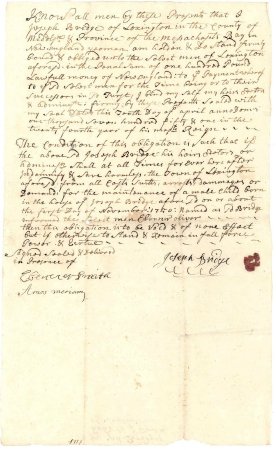 Know all men by these Presents that I
Joseph Bridge of Lexington in the County of
Middlsx & Province of the Massachusets Bay in
New england yeoman am holden & do stand firmly
bound & obliged unto the Select men of Lexington
afores.d in the Sum of one hundred Pound
Lawfull money of New england: to ye Payment whereof
to ye sd Select men for the Time being or to their
Successors in sd Trust I bind my self my heirs Exectrs
& Adminrs firmly by these Presents Sealed with
my Seal Dated this Tenth Day of april annodom
one thousand Seven hundred fifty & one and in the
twenty fourth year of his Majts Reign
The Condition of this obligation is Such that if
the above sd Joseph Bridge his heirs Exectrs or
Adminrs Shall at all Times for ever here after
Indamnify & Save harmless the Town of Lexington
afores.d from all Costs Suits arrests Dammages or
Demand for the maintainance of a male Child born
in the house of Joseph Bridge afores.d on or about
the first Day of November 1750: Named as sd Bridge
informed the Select men Ebenezer oliver
then this obligation is to be Void & of none Effect
but if otherwise to Stand & Remain in full force
Power & Vertue
Signed Sealed & Delivered
in Presence of
Joseph Bridge
Ebenezer Smith
Amos meriam